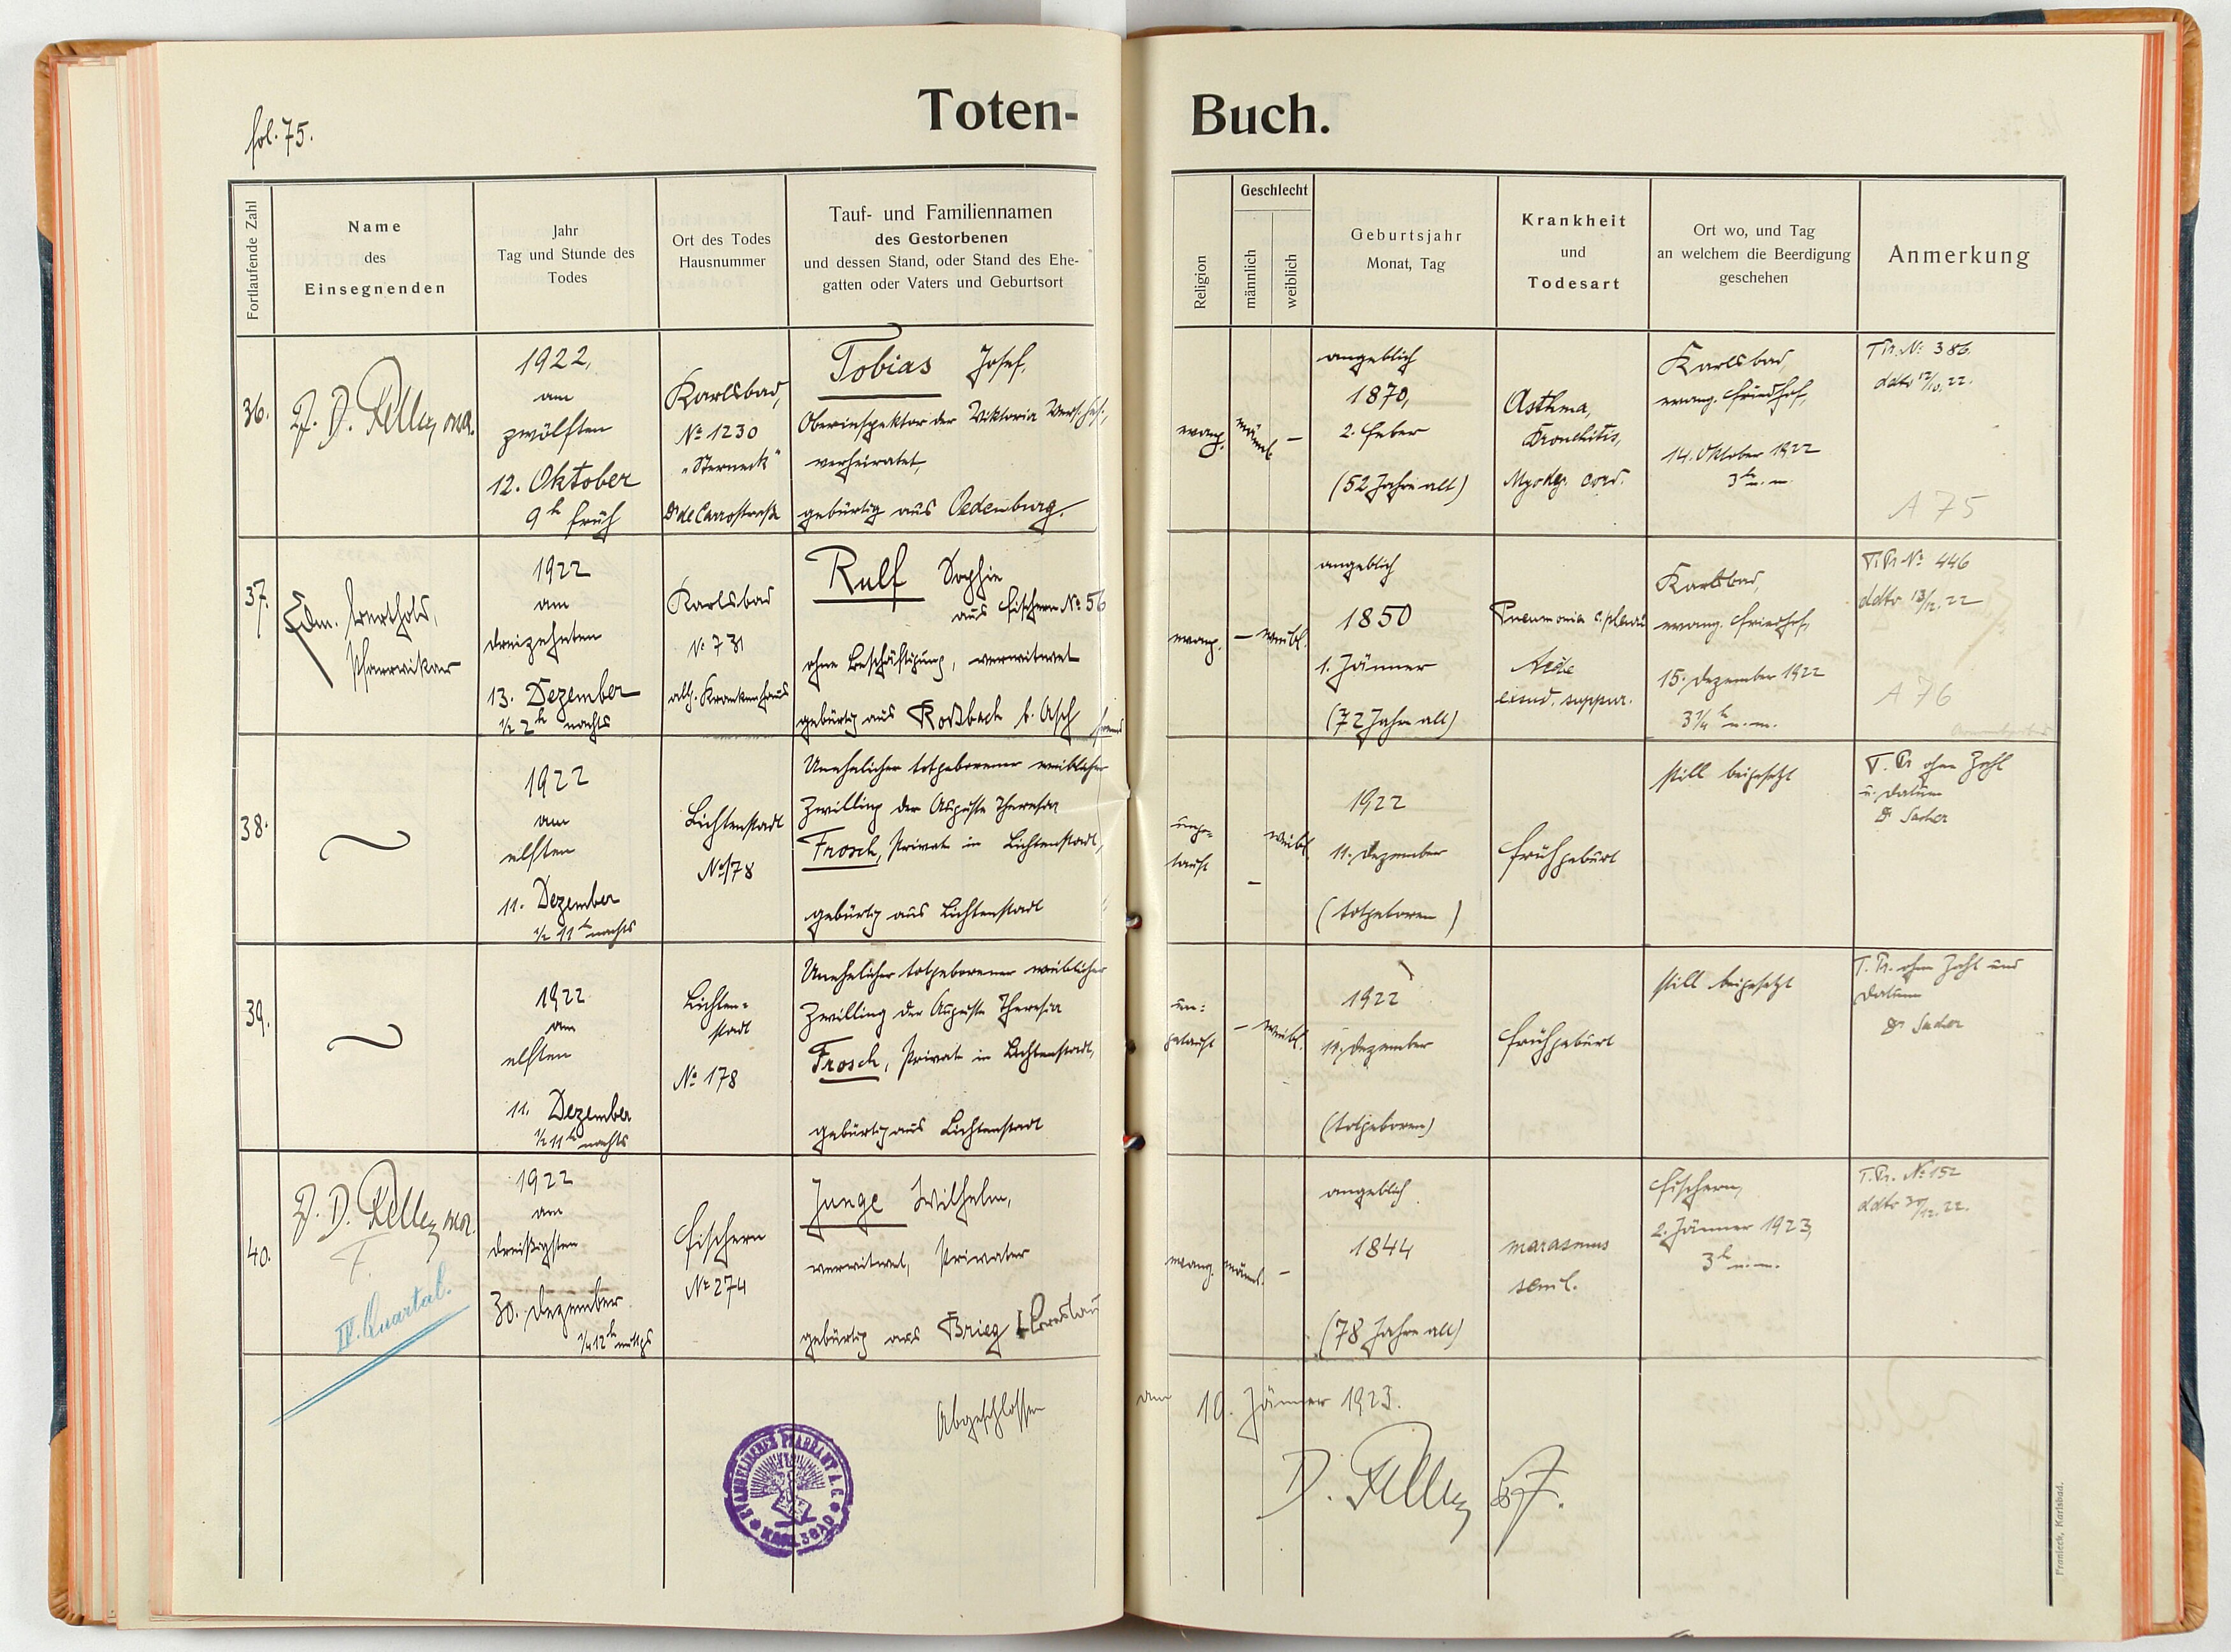 fol. 75.
Toten-Buch.
Fortlaufende Zahl
Name
des
Einsegnenden
Jahr
Tag und Stunde des
Todes
Ort des Todes
Hausnummer
Tauf- und Familiennamen
des Gestorbenen
und dessen Stand, oder Stand des Ehe-
gatten oder Vaters und Geburtsort
Religion
Geschlecht
männlich
weiblich
Geburtsjahr
Monat, Tag
Krankheit
und
Todesart
Ort wo, und Tag
an welchem die Beerdigung
geschehen
Anmerkung
36.
1922,
am
zwölften
12. Oktober
9 h früh
Karlsbad,
No 1230
„Sterneck"
Dr de Carrostraße
Tobias Josef,
Oberinspektor der Viktoria Vers. Ges.,
verheiratet,
gebürtig aus Oedenburg.
evang.
männl.
–
angeblich
1870,
2. Feber
(52 Jahre alt)
Asthma,
Bronchitis,
Myodeg. cord.
Karlsbad,
evang. Friedhof,
14. Oktober 1922
3 h n. m.
No 386.
ddto 12/10. 22.
A 75
37.
Edm. Berthold,
Pfarrvikar
1922
am
dreizehnten
13. Dezember
1/2 2 h nachts
Karlsbad
No 731
allg. Krankenhaus
Rulf Sophie
aus Fischern No 56
ohne Beschäftigung, verwitwet
gebürtig aus Roßbach b. Asch
evang.
–
weibl.
angeblich
1850
1. Jänner
(72 Jahre alt)
Pneumonia c.
exsud. suppur.
Karlsbad,
evang. Friedhof,
15. Dezember 1922
3 1/4 h n. m.
No 446
ddto 13/12. 22
A 76
38.
1922
am
elften
11. Dezember
1/2 11 h nachts
Lichtenstadt
No 178
Unehelicher totgeborener weiblicher
Zwilling der Auguste Theresia
Frosch, Private in Lichtenstadt,
gebürtig aus Lichtenstadt
unge-
tauft
–
weibl.
1922
11. Dezember
(totgeboren)
Frühgeburt
still beigesetzt
ohne Zahl
u. Datum
Dr Sacher
39.
1922
am
elften
11. Dezember
1/2 11 h nachts
Lichten=
stadt
No 178
Unehelicher totgeborener weiblicher
Zwilling der Auguste Theresia
Frosch, Private in Lichtenstadt,
gebürtig aus Lichtenstadt
un=
getauft
–
weibl.
1922
11. Dezember
(totgeboren)
Frühgeburt
still beigesetzt
ohne Zahl und
Datum
Dr Sacher
40.
IV. Quartal.
1922
am
dreißigsten
30. Dezember
Fischern
No 274
Junge Wilhelm,
verwitwet, Privater
gebürtig aus Brieg b. Breslau
evang.
männl.
–
angeblich
1844
(78 Jahre alt)
marasmus
senil.
Fischern,
2. Jänner 1923,
3 h n. m.
No 152
ddto 30/12. 22.
Abgeschlossen am 10. Jänner 1923.
EVANGELISCHES PFARRAMT A. C.
KARLSBAD
Franieck, Karlsbad.